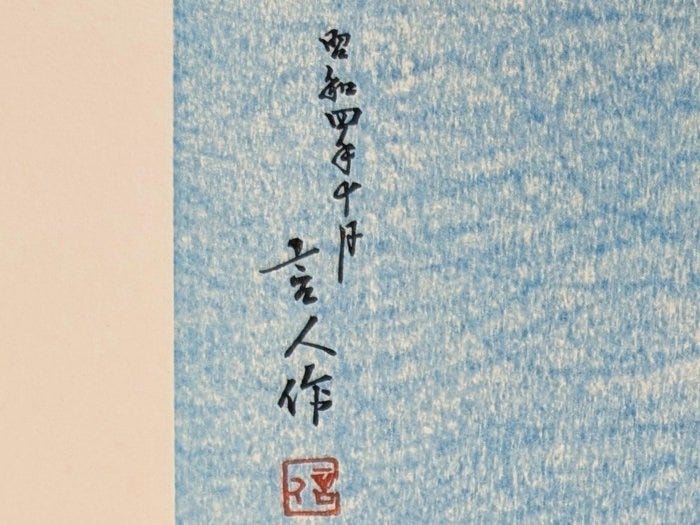 昭和四年十月
言人作